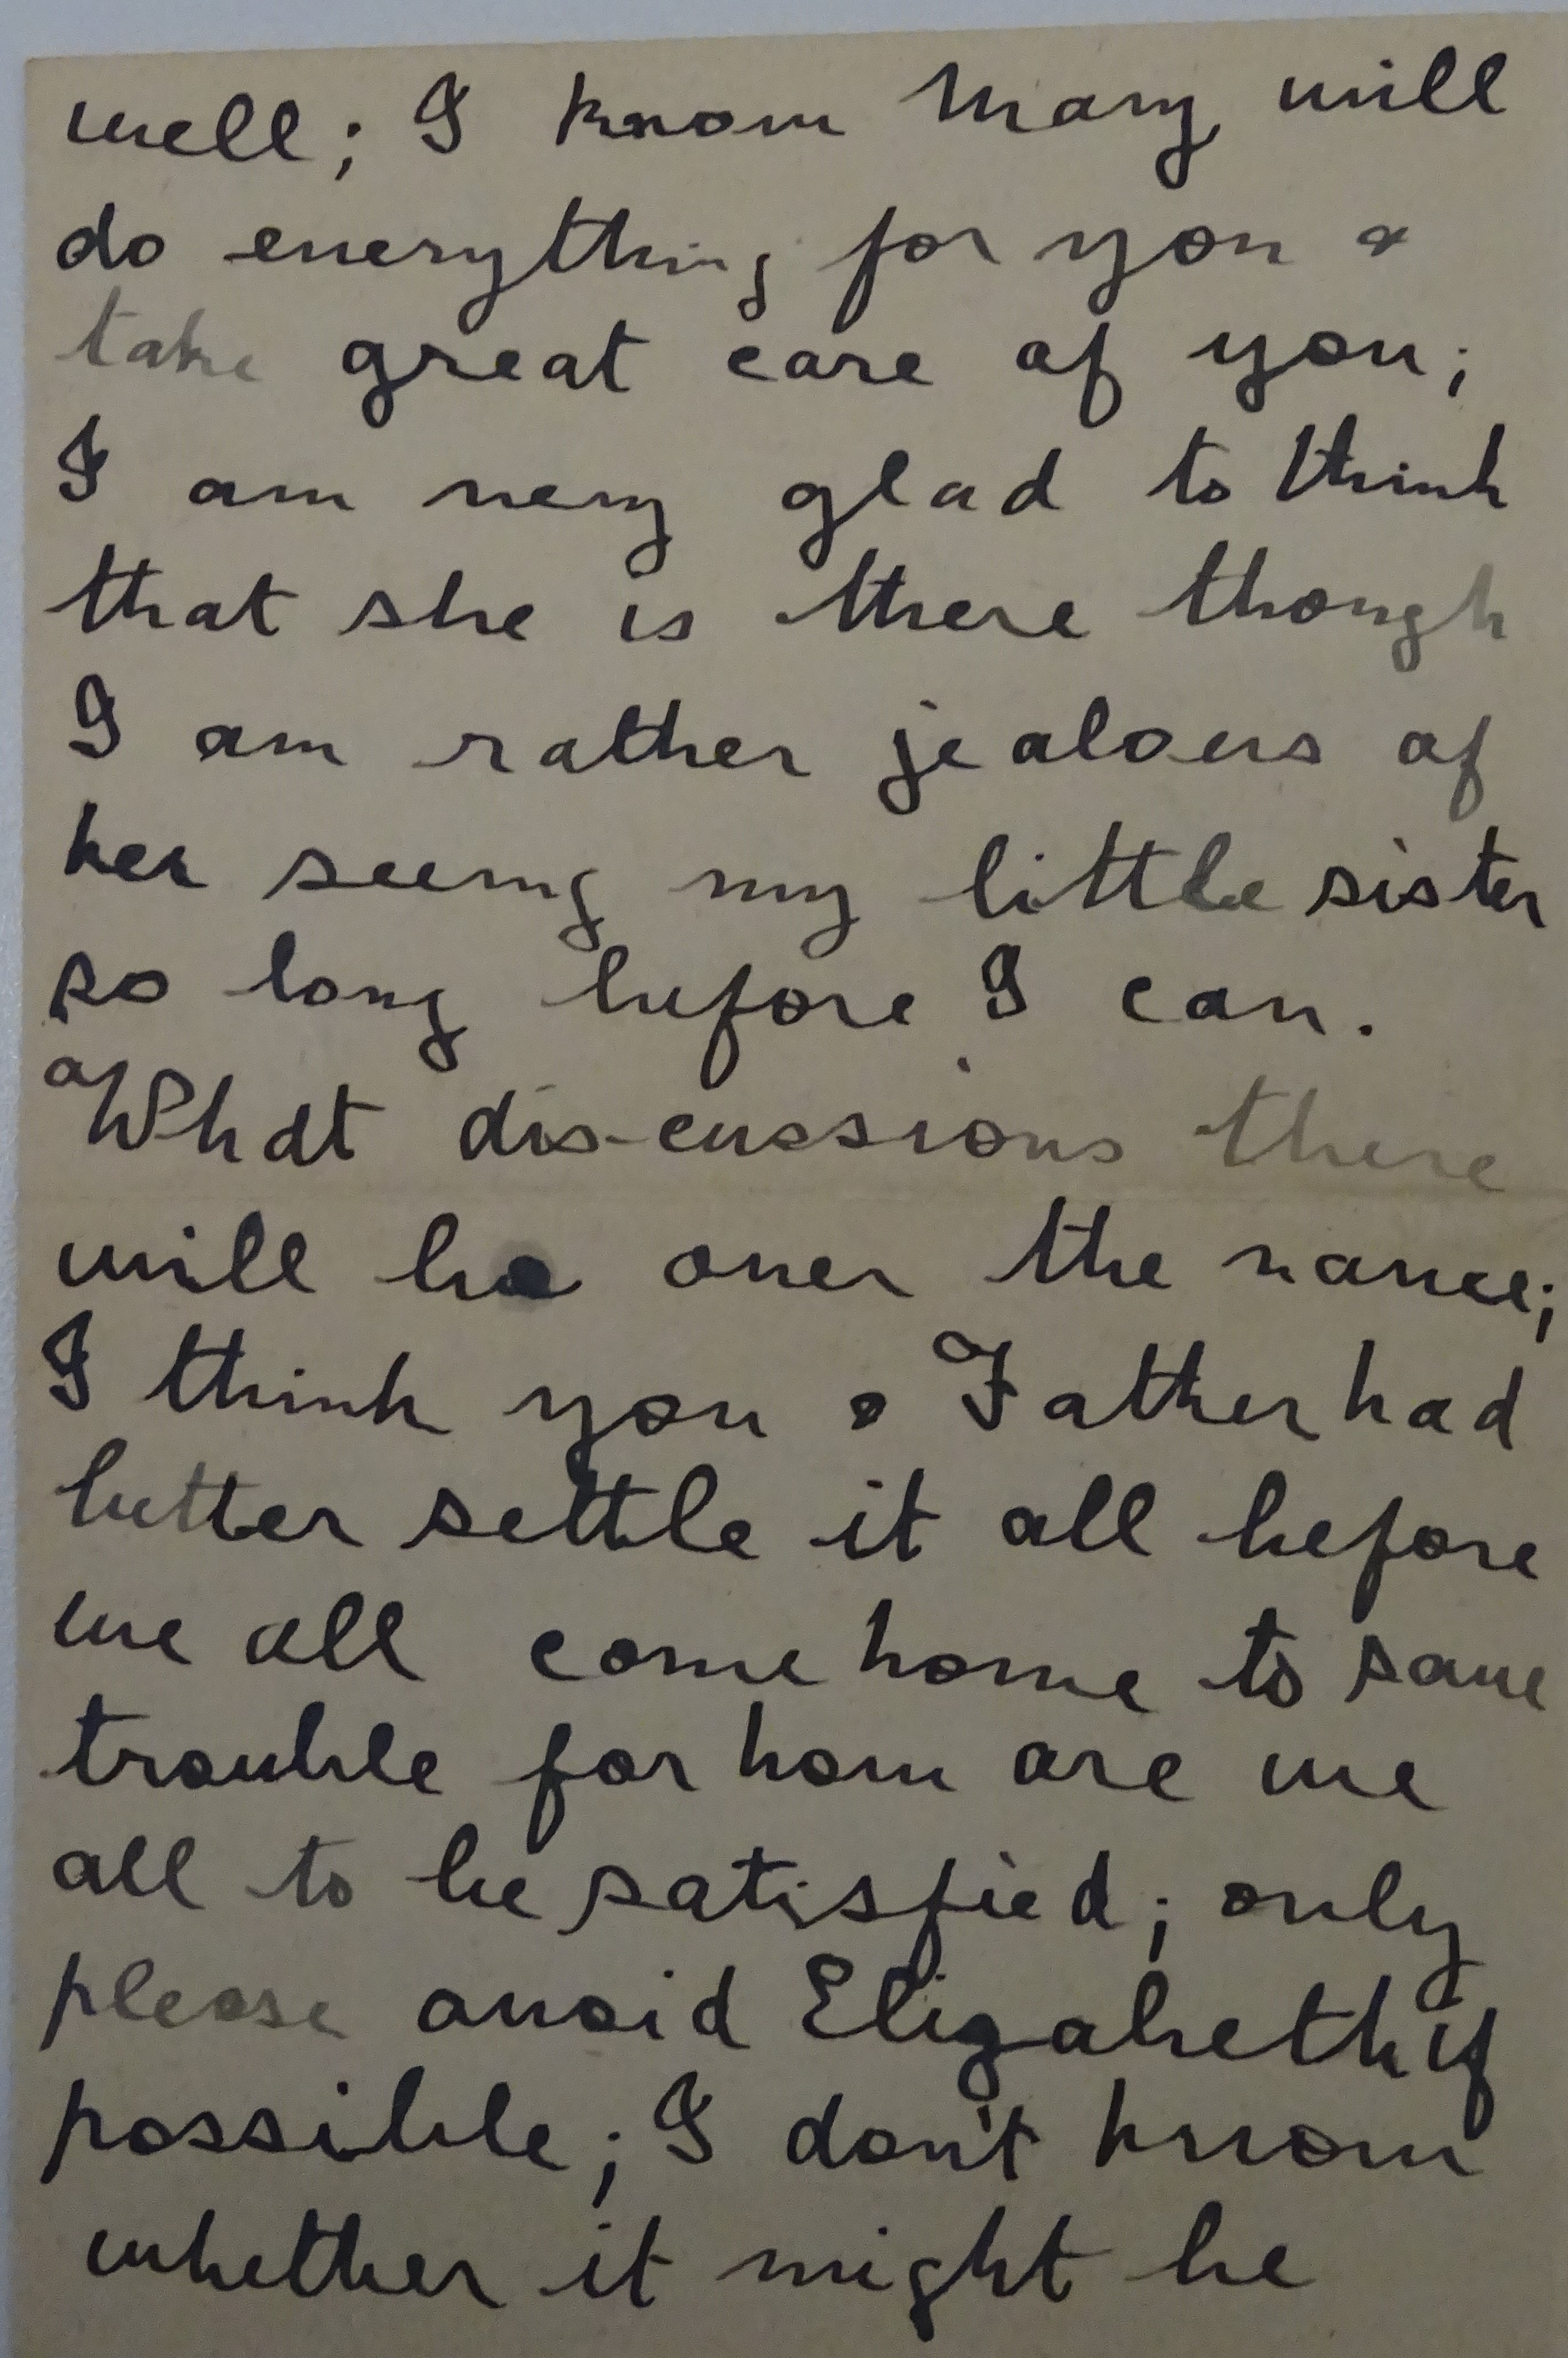 well; I know Mary will
do everything for you &
take great care of you;
I am very glad to think
that she is there though
I am rather jealous of
her seeing my little sister
so long before I can.
What discussions there
will be over the name;
I think you & Father had
better settle it all before
we all come home to save
trouble for how are we
all to be satisfied; only
please avoid Elizabeth if
possible; I don't know
whether it might be